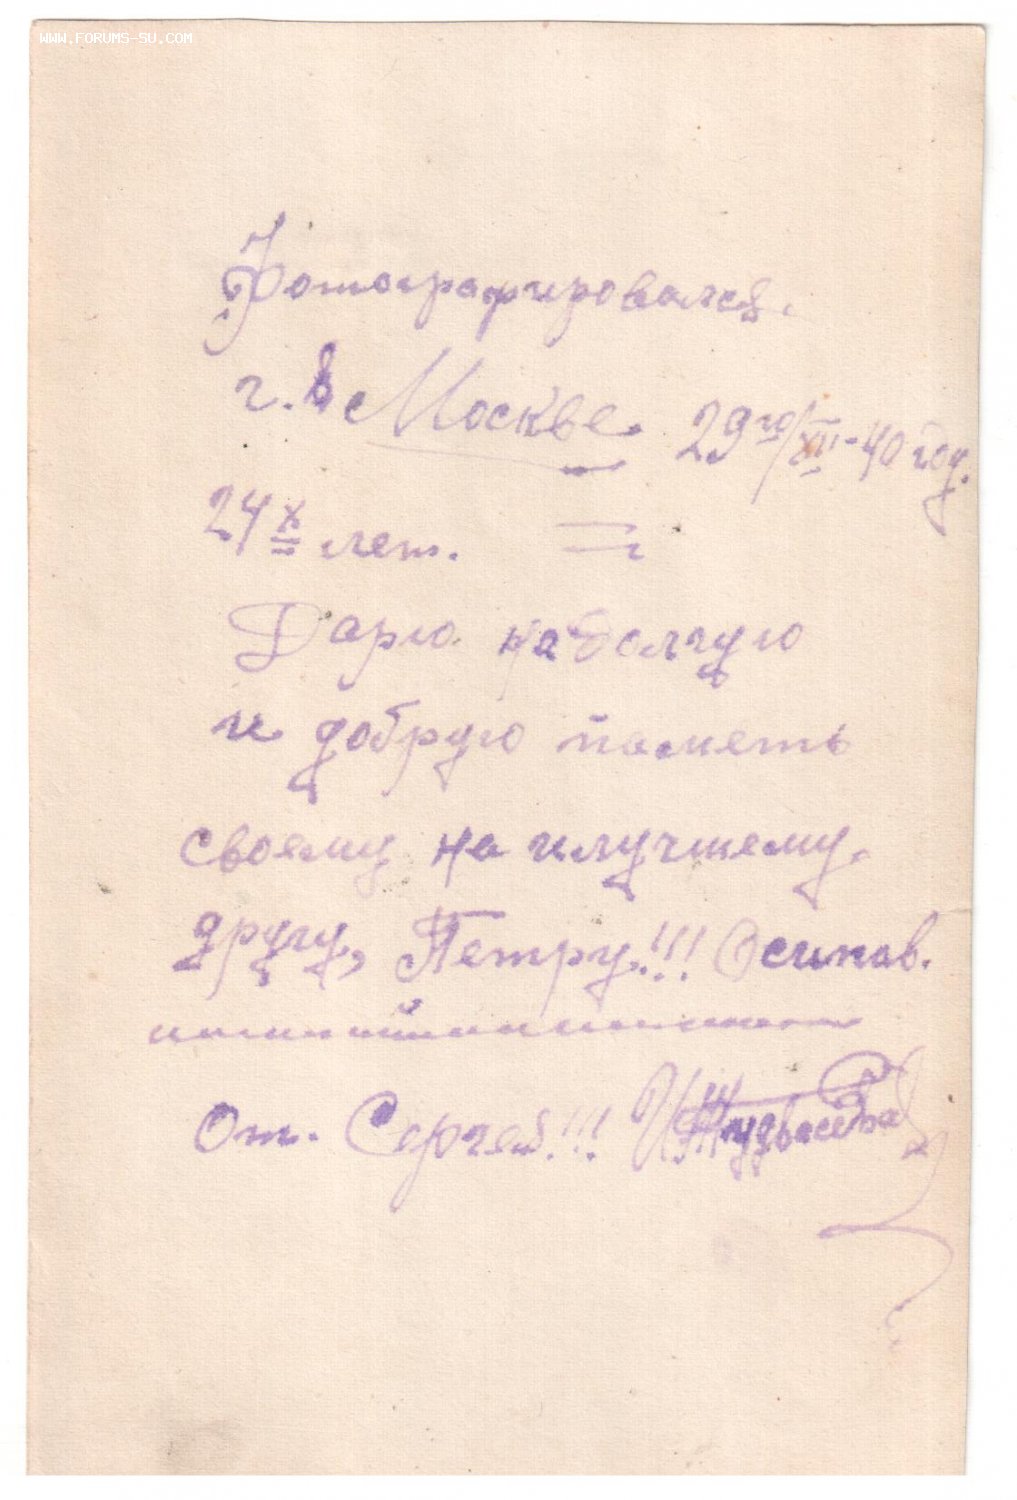 WWW.FORUMS-SU.COM
Фотографировался.
г. в Москве. 29го/XII-40 год.
24х лет.
Дарю на долгую
и добрую паметь
своему на илучшему.
другу, Петру.!!! Осипов.
От. Сергей!!!